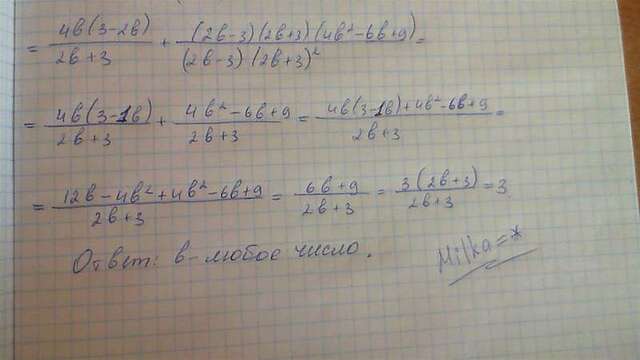 = 4в(3-2в)/(2в+3) + (2в-3)(2в+3)(4в²-6в+9)/((2в-3)(2в+3)²) =
= 4в(3-1в)/(2в+3) + (4в²-6в+9)/(2в+3) = (4в(3-1в)+4в²-6в+9)/(2в+3) =
= (12в-4в²+4в²-6в+9)/(2в+3) = (6в+9)/(2в+3) = 3(2в+3)/(2в+3) = 3
Ответ: в-любое число.
Milka=*